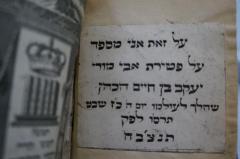 על זאת אני מספד
על פטירת אבי מורי
יעקב בן חיים הכהן
שהלך לעולמו יום ה כז שבט
תרסו לפק
תנצבה